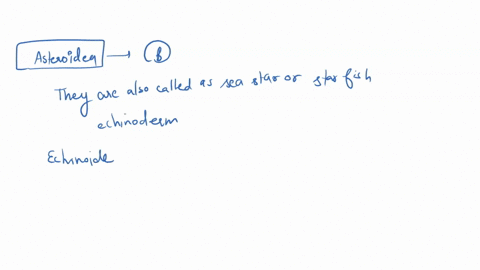 Asteroidea → B
They are also called as sea star or star fish
echinoderm
Echinoide